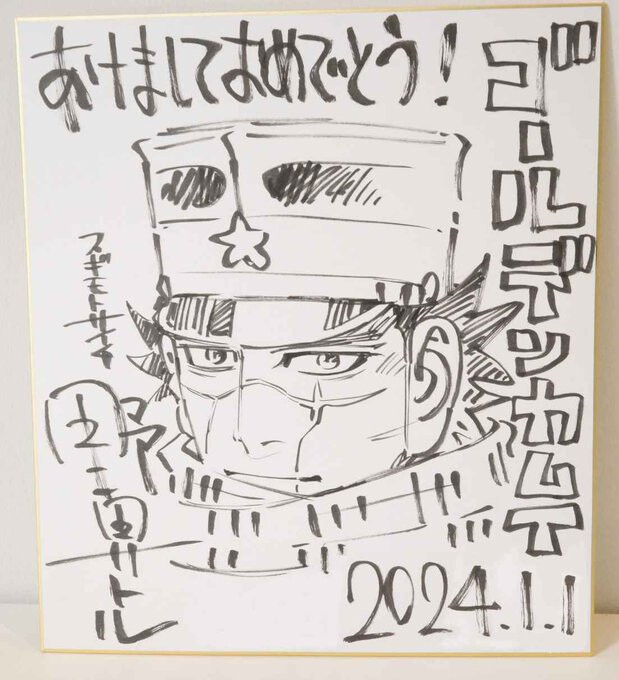 あけましておめでとう!
ゴールデンカムイ
野田サトル
2024.1.1